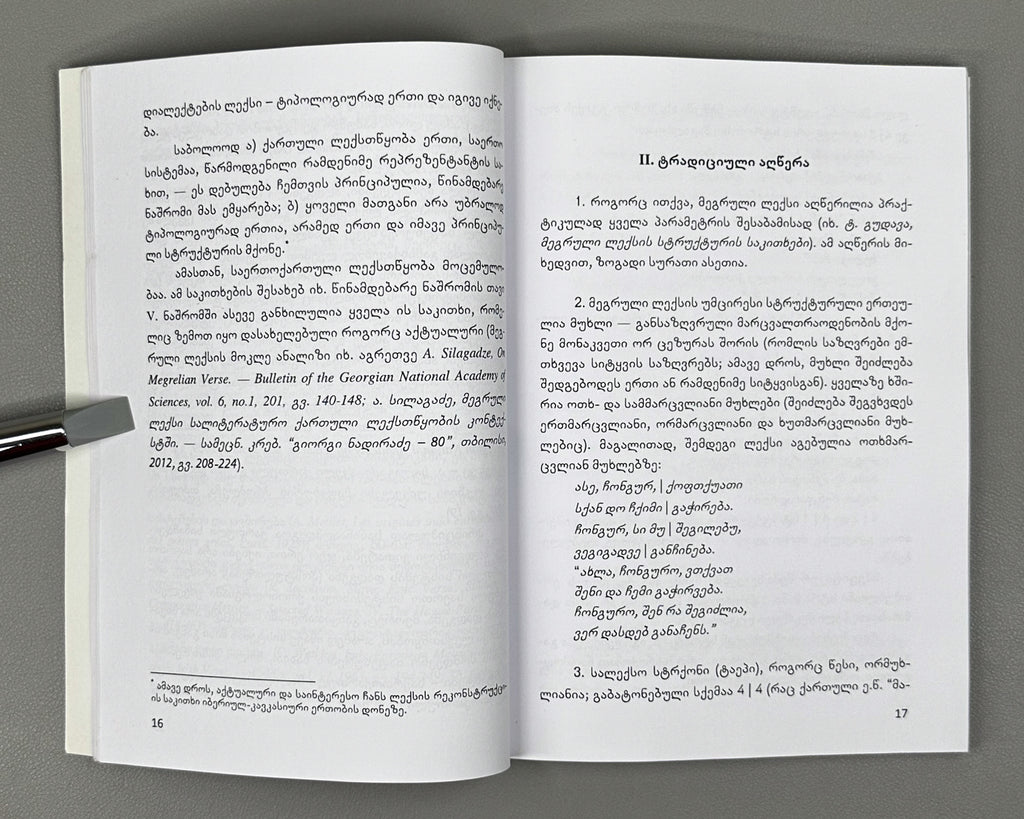 დიალექტების ლექსი – ტიპოლოგიურად ერთი და იგივე იქნე-
ბა.
საბოლოოდ ა) ქართული ლექსთწყობა ერთი, საერთო
სისტემაა, წარმოდგენილი რამდენიმე რეპრეზენტანტის სა-
ხით, — ეს დებულება ჩემთვის პრინციპულია, წინამდებარე
ნაშრომი მას ემყარება; ბ) ყოველი მათგანი არა უბრალოდ
ტიპოლოგიურად ერთია, არამედ ერთი და იმავე პრინციპუ-
ლი სტრუქტურის მქონე.*
ამასთან, საერთოქართული ლექსთწყობა მოცემულო-
ბაა. ამ საკითხების შესახებ იხ. წინამდებარე ნაშრომის თავი
V. ნაშრომში ასევე განხილულია ყველა ის საკითხი, რომე-
ლიც ზემოთ იყო დასახელებული როგორც აქტუალური (მეგ-
რული ლექსის მოკლე ანალიზი იხ. აგრეთვე A. Silagadze, On
Megrelian Verse. — Bulletin of the Georgian National Academy of
Sciences, vol. 6, no.1, 201, გვ. 140-148; ა. სილაგაძე, მეგრული
ლექსი სალიტერატურო ქართული ლექსთწყობის კონტექ-
სტში. — სამეცნ. კრებ. “გიორგი ნადირაძე – 80”, თბილისი,
2012, გვ. 208-224).
* ამავე დროს, აქტუალური და საინტერესო ჩანს ლექსის რეკონსტრუქცი-
ის საკითხი იბერიულ-კავკასიური ერთობის დონეზე.
16
II. ტრადიციული აღწერა
1. როგორც ითქვა, მეგრული ლექსი აღწერილია პრაქ-
ტიკულად ყველა პარამეტრის შესაბამისად (იხ. ტ. გუდავა,
მეგრული ლექსის სტრუქტურის საკითხები). ამ აღწერის მი-
ხედვით, ზოგადი სურათი ასეთია.
2. მეგრული ლექსის უმცირესი სტრუქტურული ერთეუ-
ლია მუხლი — განსაზღვრული მარცვალთრაოდენობის მქო-
ნე მონაკვეთი ორ ცეზურას შორის (რომლის საზღვრები ემ-
თხვევა სიტყვის საზღვრებს; ამავე დროს, მუხლი შეიძლება
შედგებოდეს ერთი ან რამდენიმე სიტყვისგან). ყველაზე ხში-
რია ოთხ- და სამმარცვლიანი მუხლები (შეიძლება შეგვხვდეს
ერთმარცვლიანი, ორმარცვლიანი და ხუთმარცვლიანი მუხ-
ლებიც). მაგალითად, შემდეგი ლექსი აგებულია ოთხმარ-
ცვლიან მუხლებზე:
ასე, ჩონგურ, | ქოფთქუათი
სქან დო ჩქიმი | გაჭირება.
ჩონგურ, სი მუ | შეგილებუ,
ვეგიგადვე | განჩინება.
“ახლა, ჩონგურო, ვთქვათ
შენი და ჩემი გაჭირვება.
ჩონგურო, შენ რა შეგიძლია,
ვერ დასდებ განაჩენს.”
3. სალექსო სტრქონი (ტაეპი), როგორც წესი, ორმუხ-
ლიანია; გაბატონებული სქემაა 4 | 4 (რაც ქართული ე.წ. “მა-
17